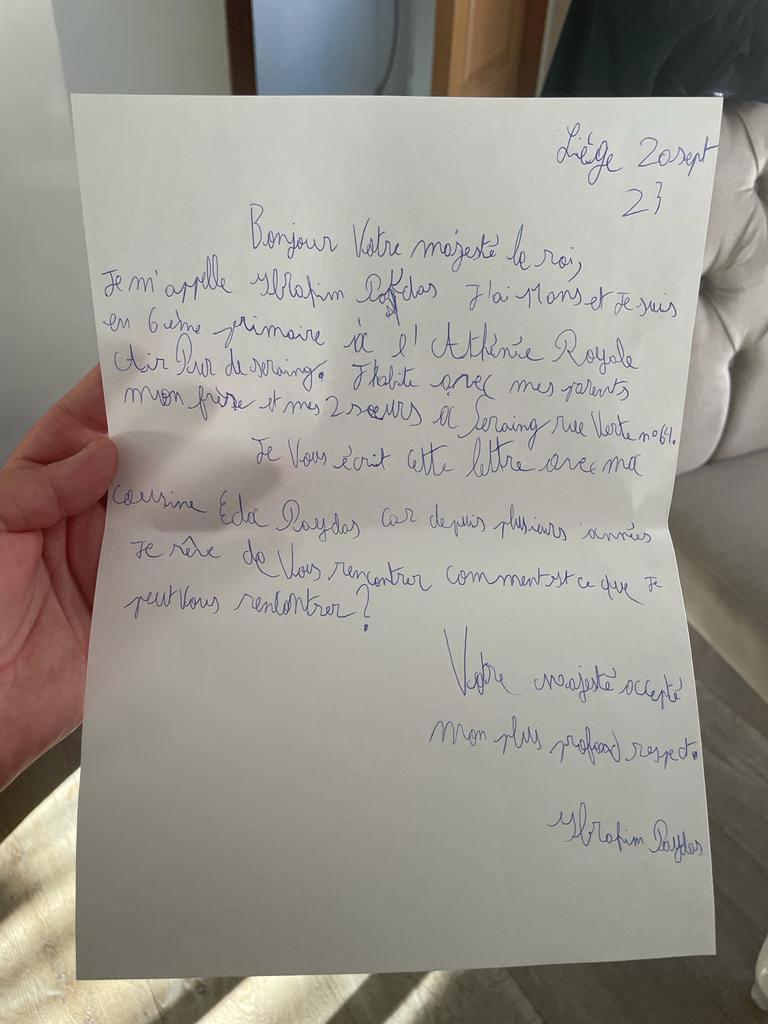 Liège 20 sept
23
Bonjour Votre majesté le roi,
Je m'appelle Ibrahim Paydas J'ai 11 ans et Je suis
en 6 ième primaire à l'Athénée Royale
Air Pur de seraing. J'habite avec mes parents
mon frère et mes 2 sœurs à Seraing rue Verte n°64.
Je Vous écrit cette lettre avec ma
cousine Eda Paydas car depuis plusieurs années
Je rêve de Vous rencontrer comment est ce que Je
peut Vous rencontrer?
Votre majesté accepté
mon plus profond respect.
Ibrahim Paydas